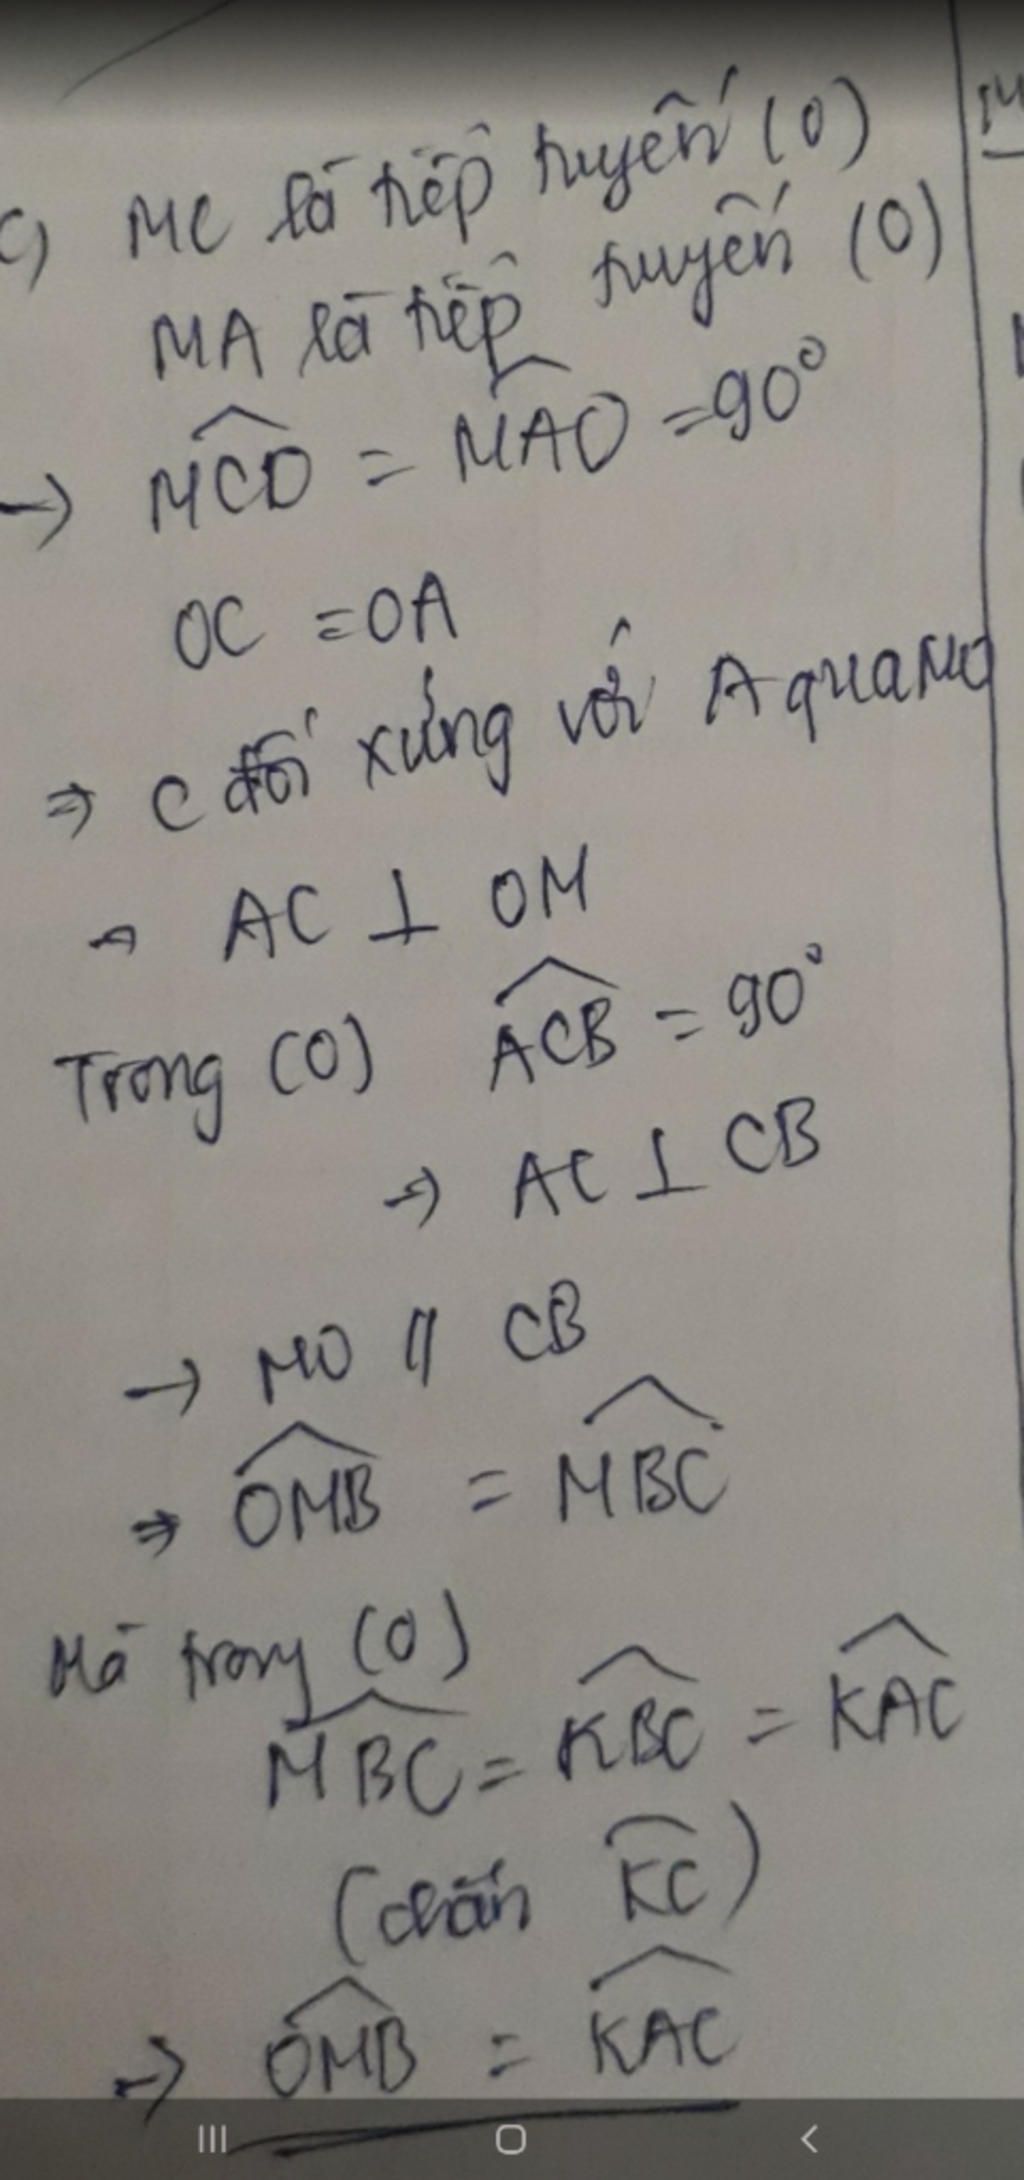 c) MC là tiếp tuyến (O)
MA là tiếp tuyến (O)
→ \widehat{MCO} = \widehat{MAO} = 90°
OC = OA
⇒ C đối xứng với A qua MO
→ AC ⊥ OM
Trong (O) \widehat{ACB} = 90°
→ AC ⊥ CB
→ MO // CB
⇒ \widehat{OMB} = \widehat{MBC}
Mà trong (O)
\widehat{MBC} = \widehat{KBC} = \widehat{KAC}
(chắn \overset{\frown}{KC})
→ \widehat{OMB} = \widehat{KAC}